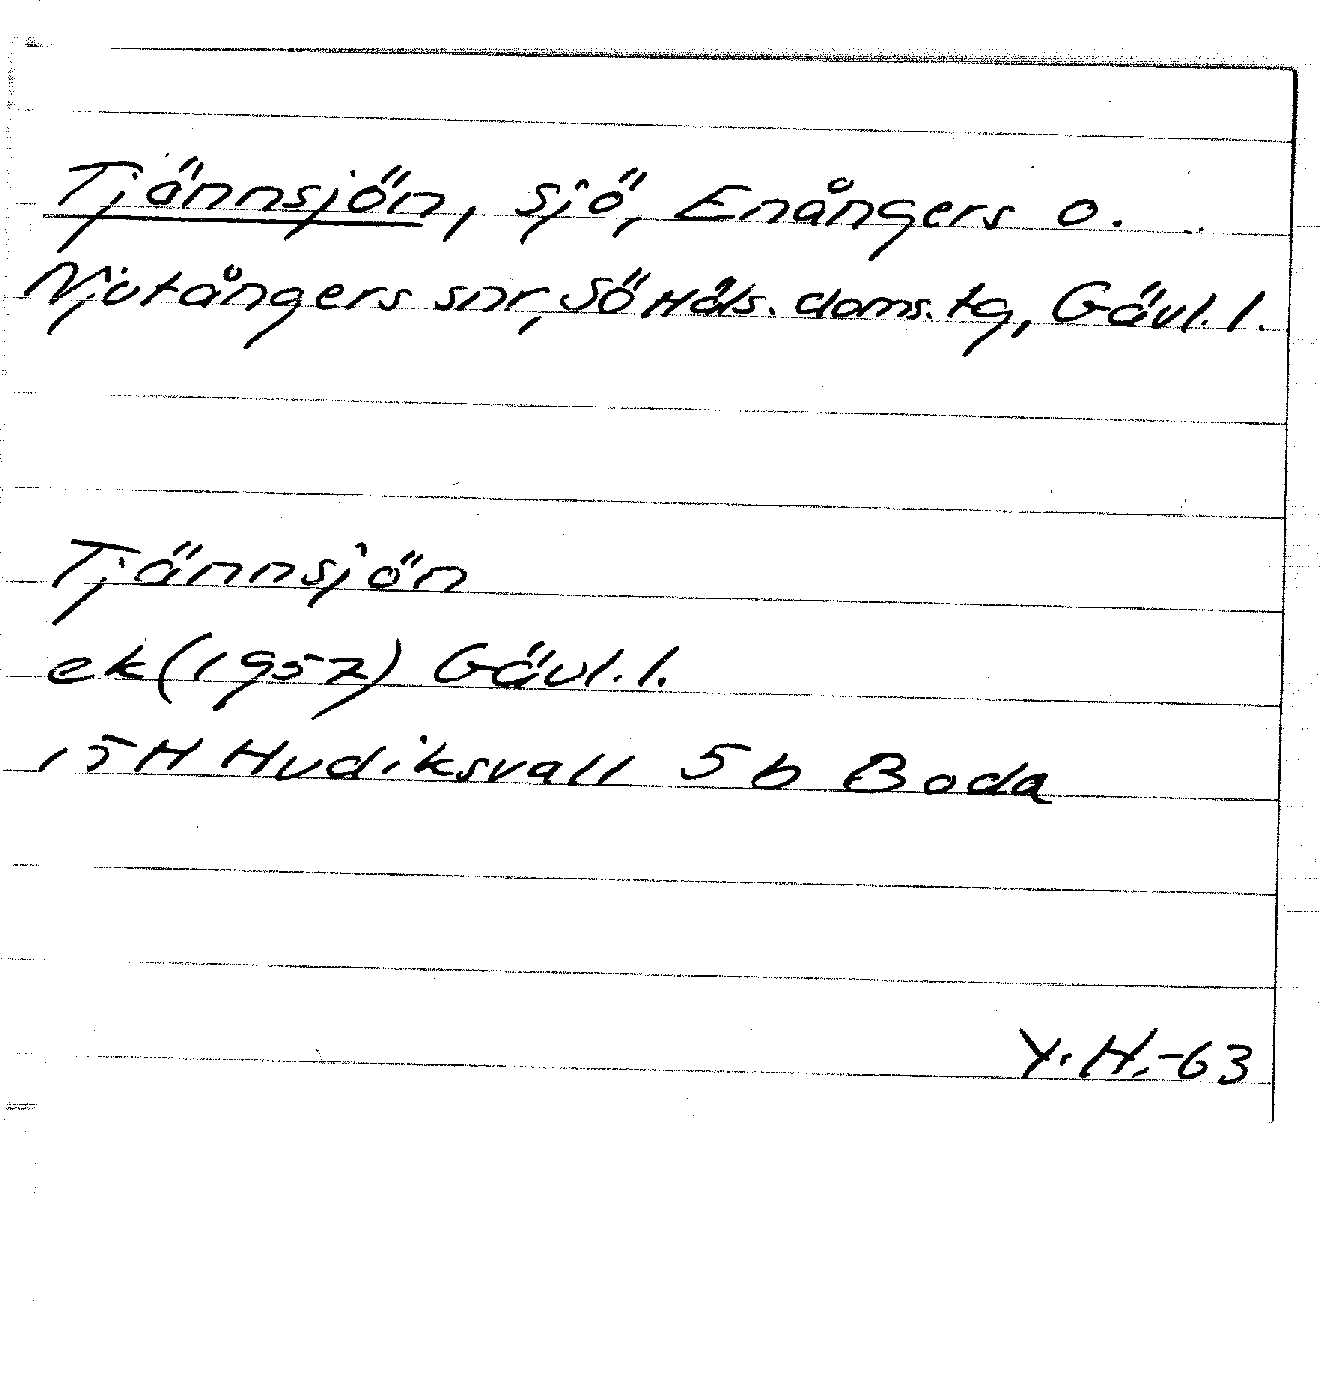 Tjännsjön, sjö, Enångers o.
Njutångers snr, Sö Häls. doms. tg, Gävl. l.
Tjännsjön
ek (1957) Gävl. l.
15H Hudiksvall 5b Boda
Y. H. -63